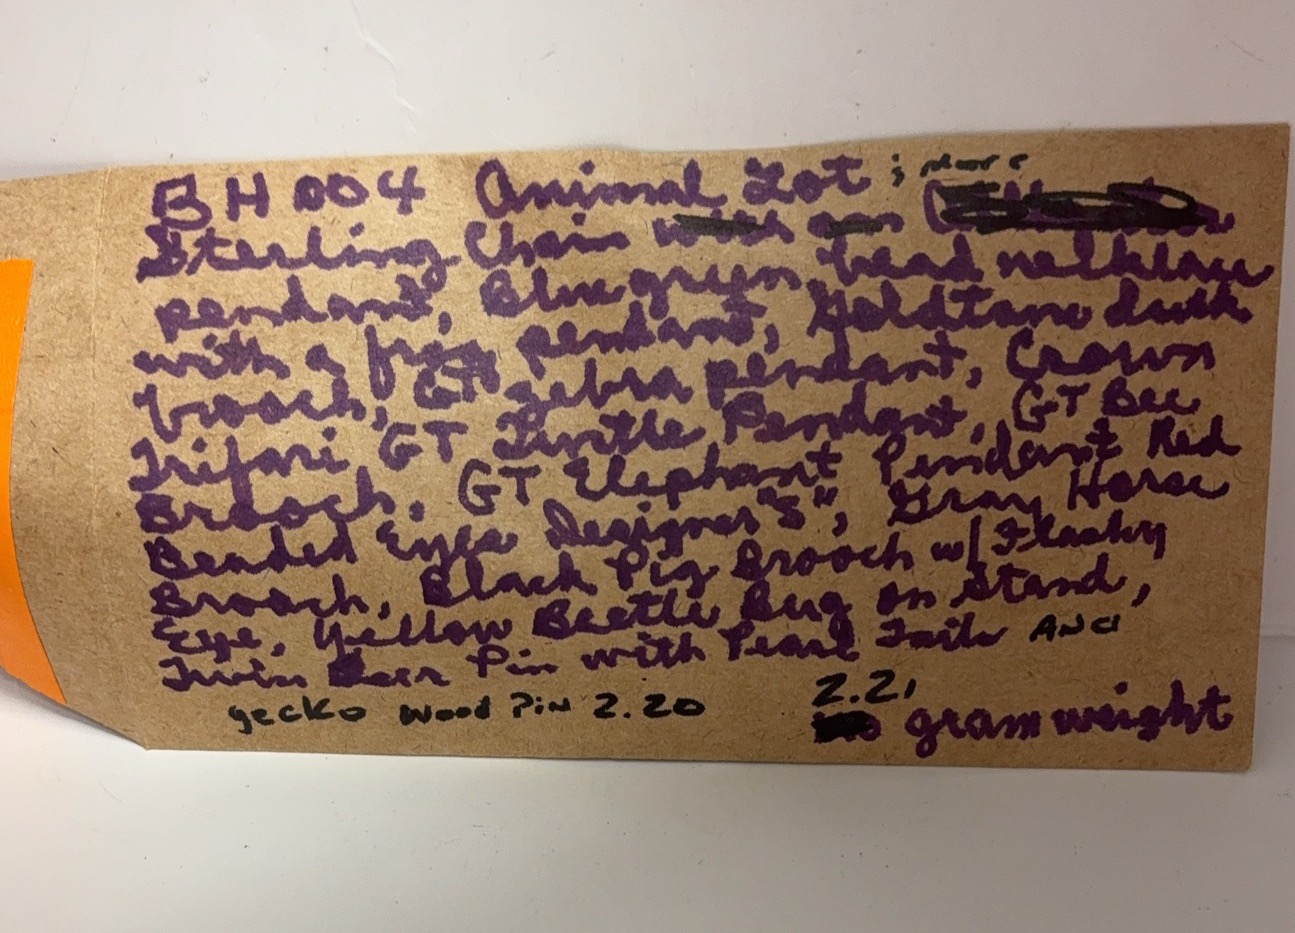 BH 004 Animal Lot ; more
Sterling Chain with an
pendant, Blue green bead necklace
with a frog pendant, Goldtone duck
brooch, GT zebra pendant, Crown
Trifari GT Turtle Pendant, GT Bee
Brooch, GT Elephant Pendant Red
Beaded Eyes Designer "S", Gray Horse
Brooch, Black Pig Brooch w/ Flashy
Eye, Yellow Beetle Bug on Stand,
Twin Deer Pin with Pearl Tails AND
gecko wood Pin 2.20 2.21
gram weight